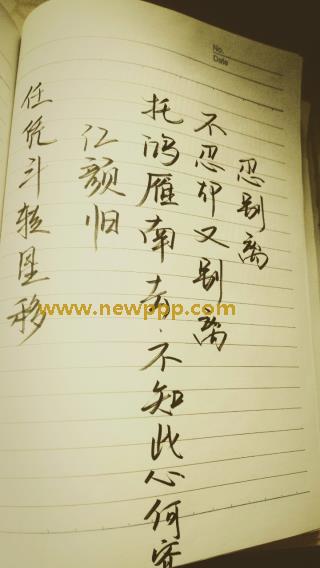 No.
Date
忍别离
不忍却又别离
托鸿雁南去·不知此心何寄
红颜旧
任凭斗转星移
www.newppp.com